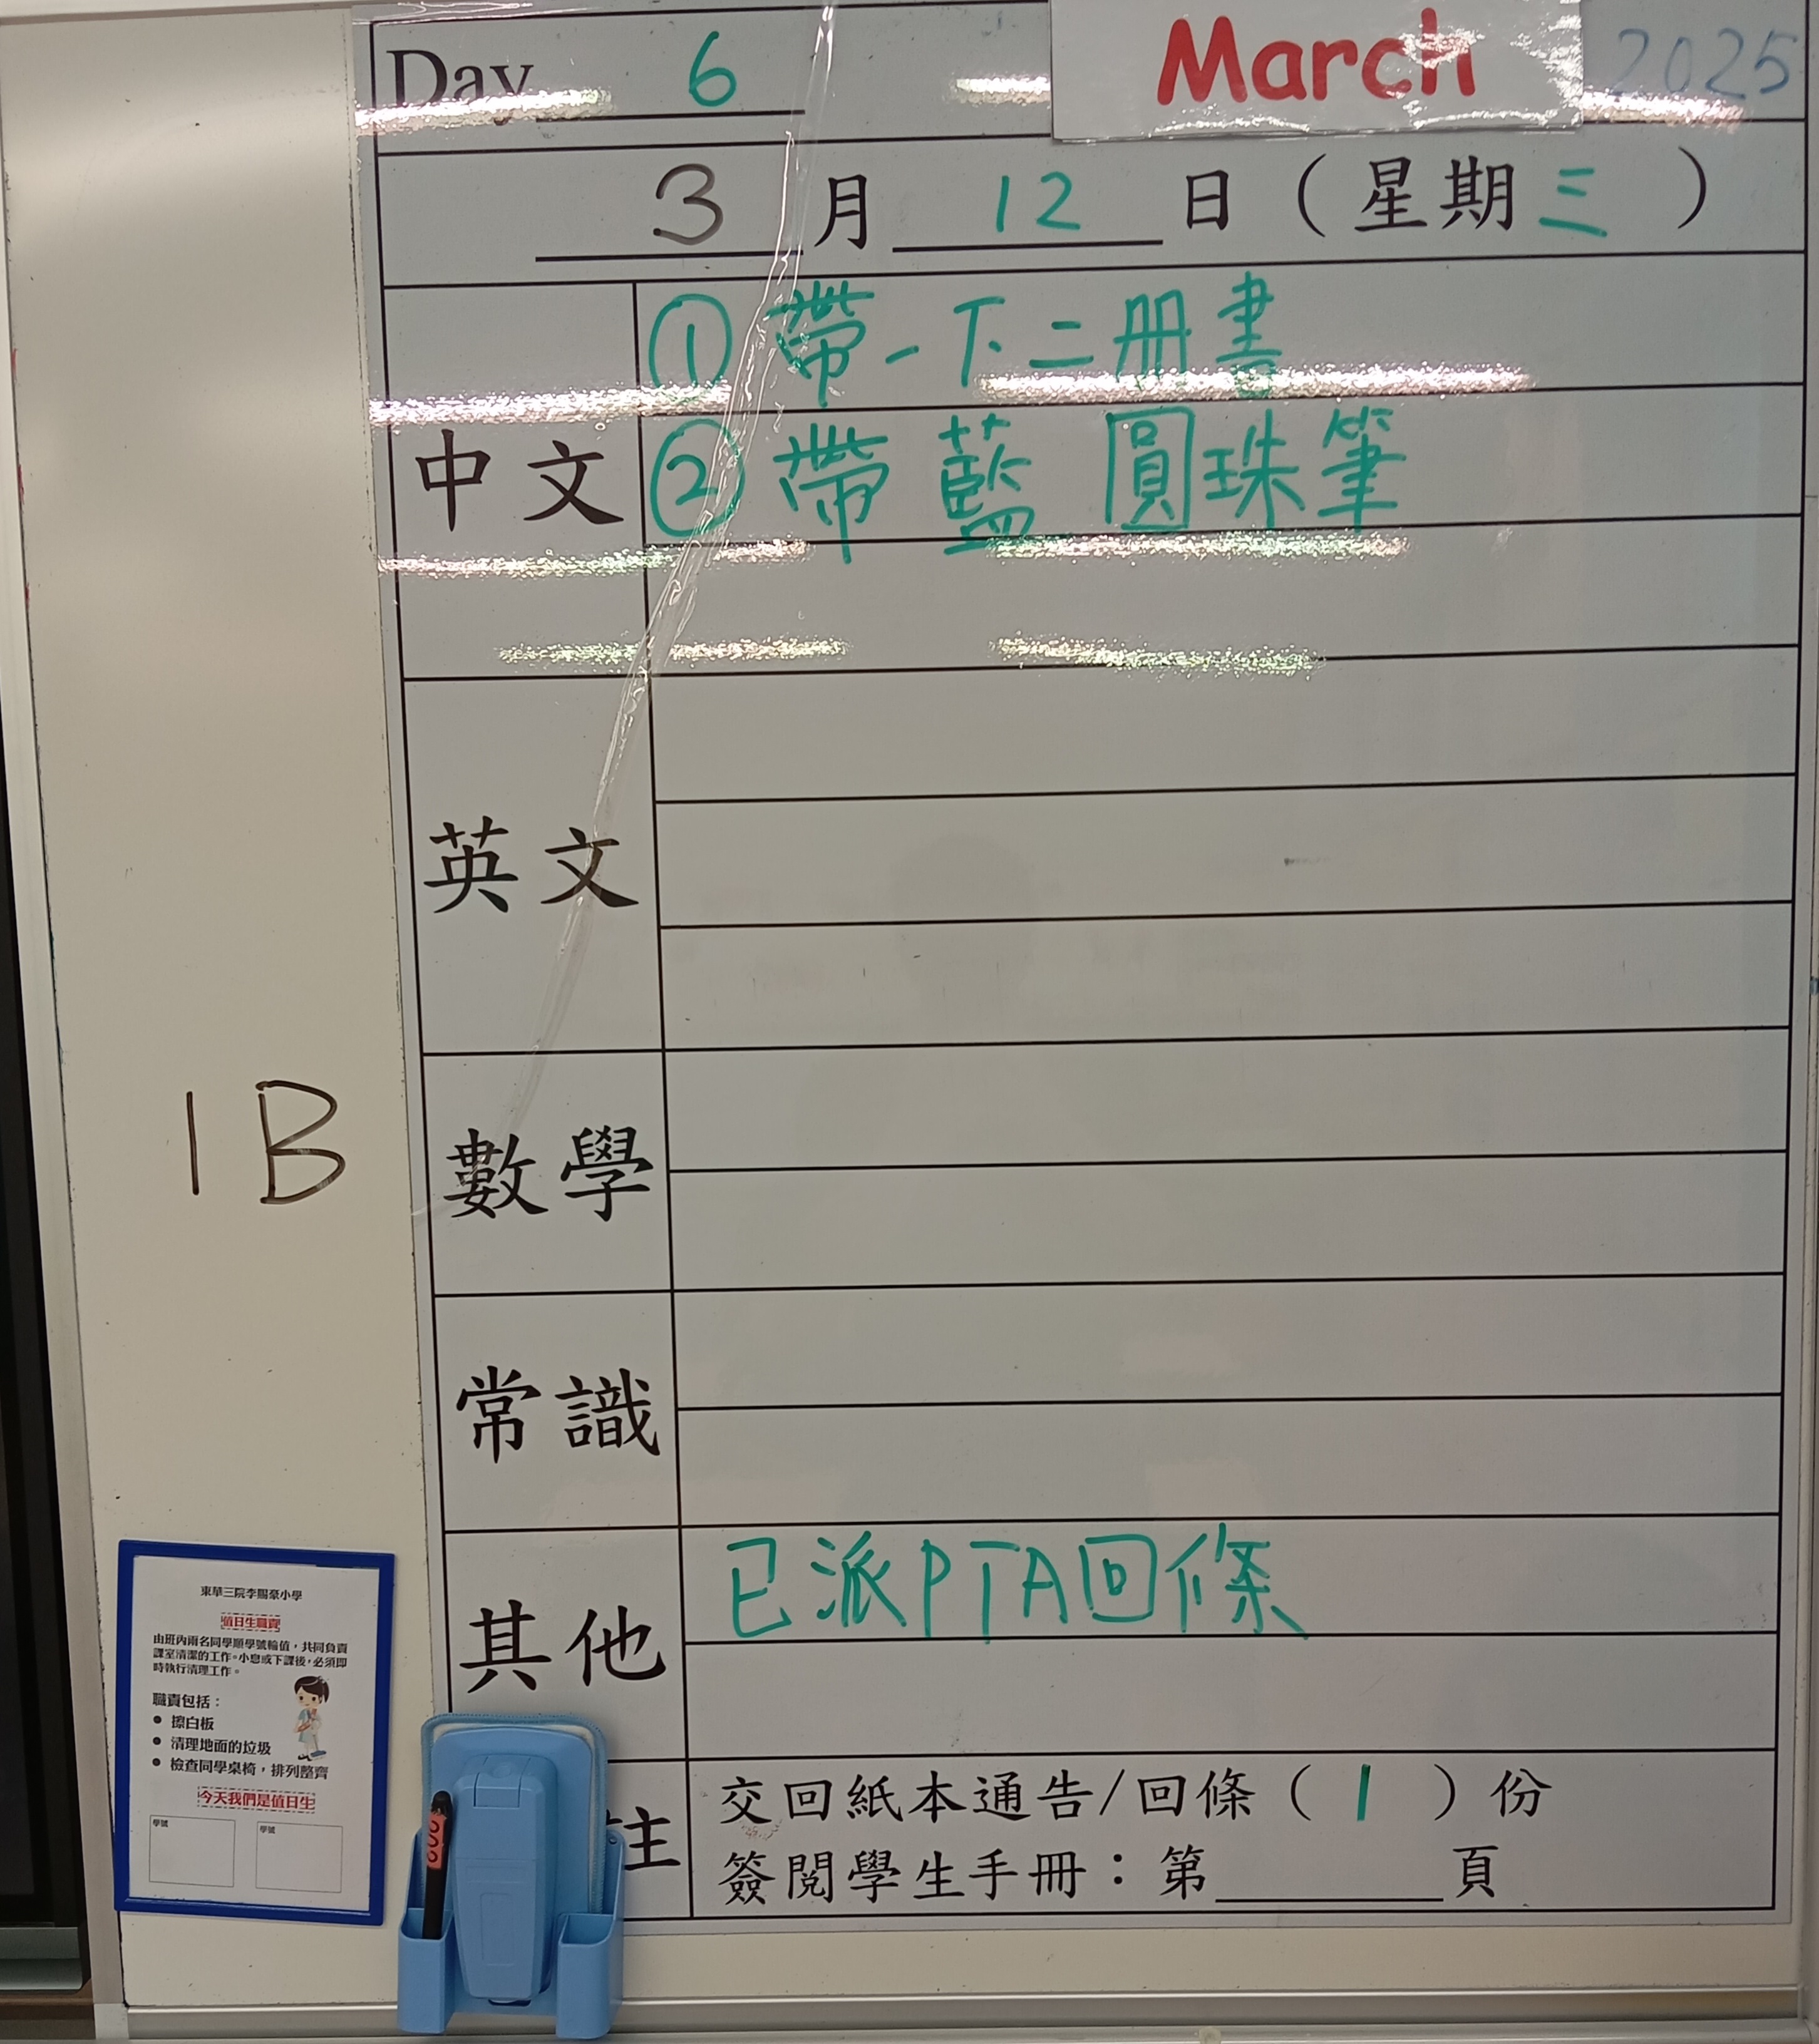 Day 6
March 2025
3 月 12 日 ( 星期 三 )
中文
① 帶一下二冊書
② 帶藍圓珠筆
英文
數學
1B
常識
其他
已派PTA回條
註
交回紙本通告/回條 ( 1 ) 份
簽閱學生手冊：第 頁
東華三院李賜豪小學
值日生職責
由班內兩名同學順學號輪值，共同負責
課室清潔的工作。小息或下課後，必須即
時執行清理工作。
職責包括：
• 擦白板
• 清理地面的垃圾
• 檢查同學桌椅，排列整齊
今天我們是值日生
學號 學號